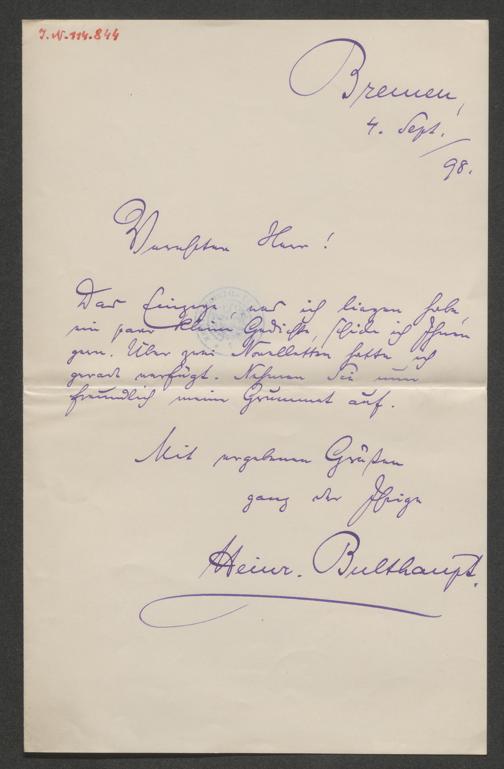 J.N. 114.844
Bremen,
4. Sept.
98.
Verehrter Herr!
Das Einzige, was ich liegen habe,
ein paar kleine Gedichte, schicke ich Ihnen
gern. Über zwei Novelletten hatte ich
gerade verfügt. Nehmen Sie nun
freundlich meine Grummet auf.
Mit ergebenen Grüßen
ganz der Ihrige
Heinr. Bulthaupt.